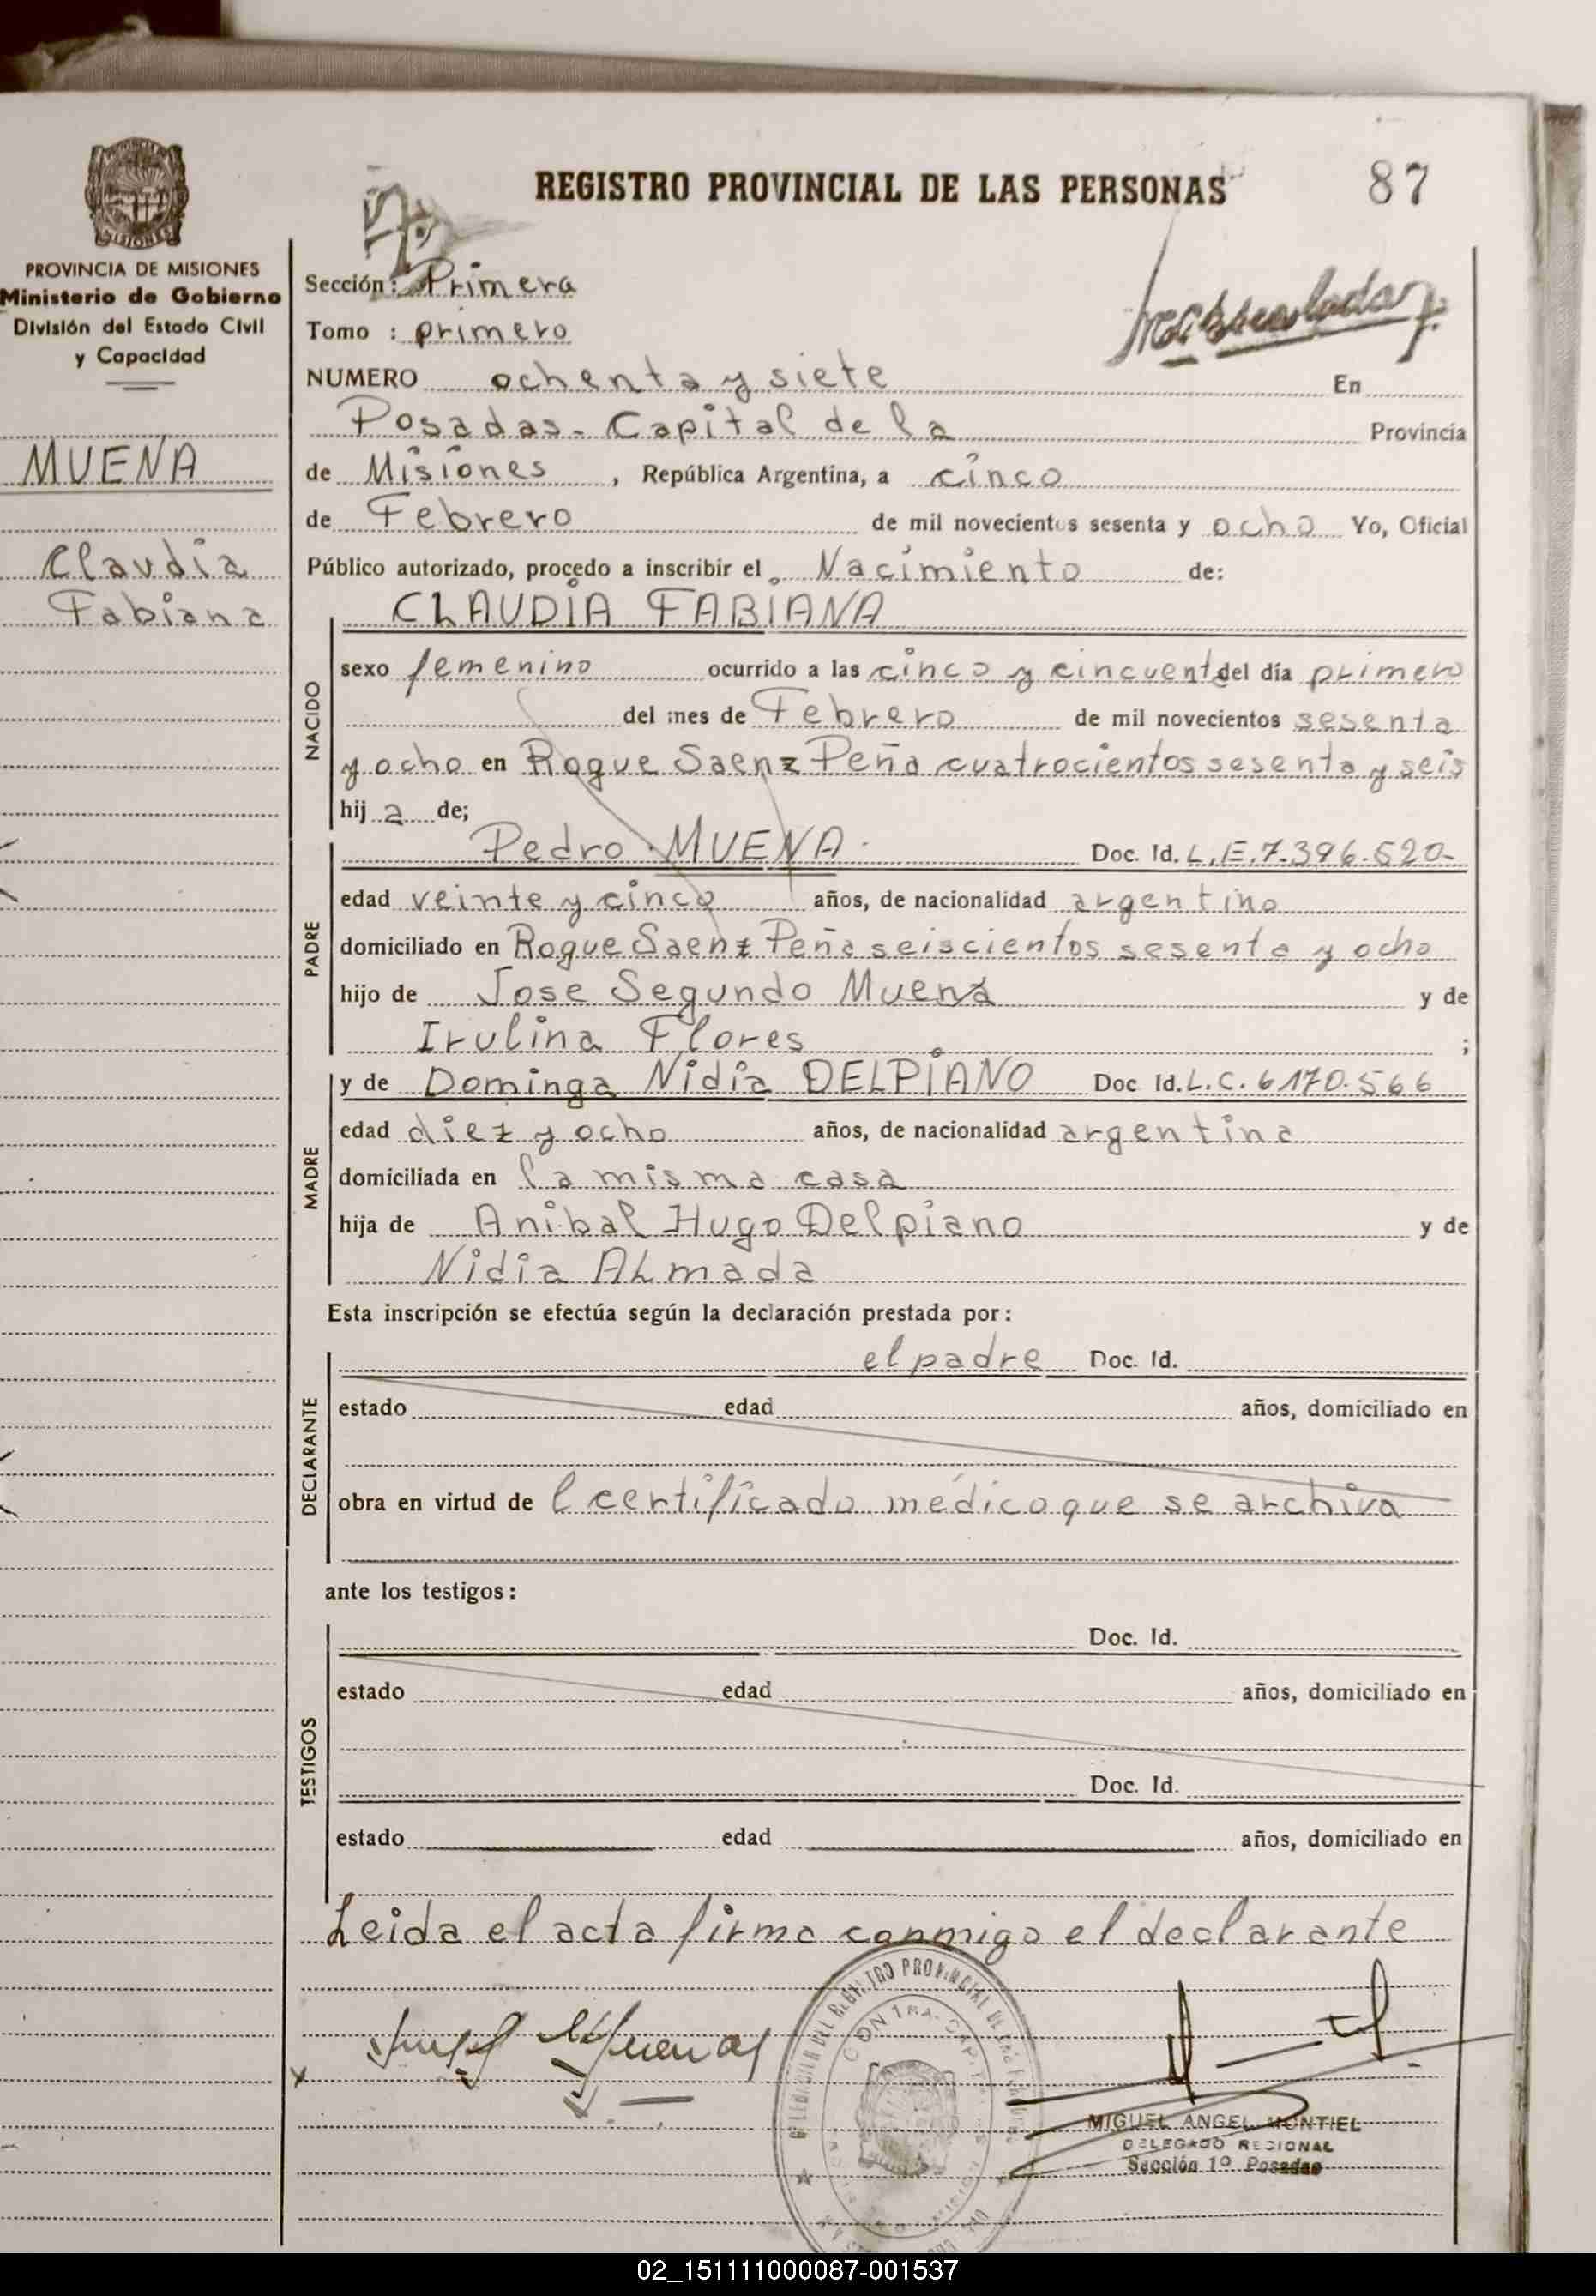 REGISTRO PROVINCIAL DE LAS PERSONAS
87
PROVINCIA DE MISIONES
Ministerio de Gobierno
División del Estado Civil
y Capacidad
MUENA
Claudia
Fabiana
Sección: Primera
Tomo : primero
NUMERO ochenta y siete En
Posadas - Capital de la Provincia
de Misiones, República Argentina, a cinco
de Febrero de mil novecientos sesenta y ocho Yo, Oficial
Público autorizado, procedo a inscribir el Nacimiento de:
NACIDO
CLAUDIA FABIANA
sexo femenino ocurrido a las cinco y cincuenta del día primero
del mes de Febrero de mil novecientos sesenta
y ocho en Roque Saenz Peña cuatrocientos sesenta y seis
hija de;
PADRE
Pedro MUENA Doc. Id. L.E. 7.396.520-
edad veinte y cinco años, de nacionalidad argentino
domiciliado en Roque Saenz Peña seiscientos sesenta y ocho
hijo de Jose Segundo Muena y de
Irulina Flores ;
MADRE
y de Dominga Nidia DELPIANO Doc Id. L.C. 6.170.566
edad diez y ocho años, de nacionalidad argentina
domiciliada en la misma casa
hija de Anibal Hugo Delpiano y de
Nidia ALmada
Esta inscripción se efectúa según la declaración prestada por:
DECLARANTE
el padre Doc. Id.
estado edad años, domiciliado en
obra en virtud de l certificado médico que se archiva
ante los testigos:
TESTIGOS
Doc. Id.
estado edad años, domiciliado en
Doc. Id.
estado edad años, domiciliado en
Leida el acta firma conmigo el declarante
MIGUEL ANGEL MONTIEL
DELEGADO REGIONAL
Sección 1º Posadas
02_151111000087-001537